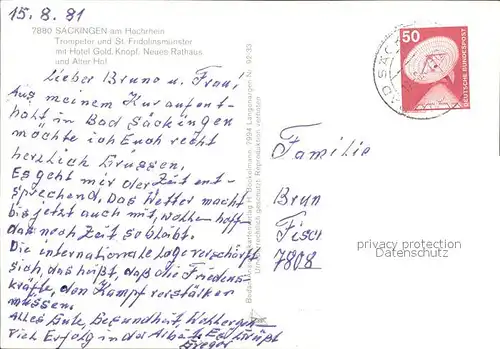 15.8.81
7880 SÄCKINGEN am Hochrhein
Trompeter und St. Fridolinsmünster
mit Hotel Gold. Knopf. Neues Rathaus
und Alter Hof
Lieber Bruno u. Frau,
Aus meinem Kuraufent-
halt in Bad Säckingen
möchte ich Euch recht
herzlich Grüssen.
Es geht mir der Zeit ent-
sprechend. Das Wetter macht
bis jetzt auch mit, wollen hoffen
das noch Zeit so bleibt.
Die internationale Lage verschärft
sich, das heißt, daß die Friedens-
kräfte, den Kampf verstärken
müssen.
Alles Gute, Gesundheit, Wohlergeh-
Viel Erfolg in der Es Grüßt
50
DEUTSCHE BUNDESPOST
BAD SÄCK
Familie
Brun
Fisc
7808
privacy protection
Datenschutz